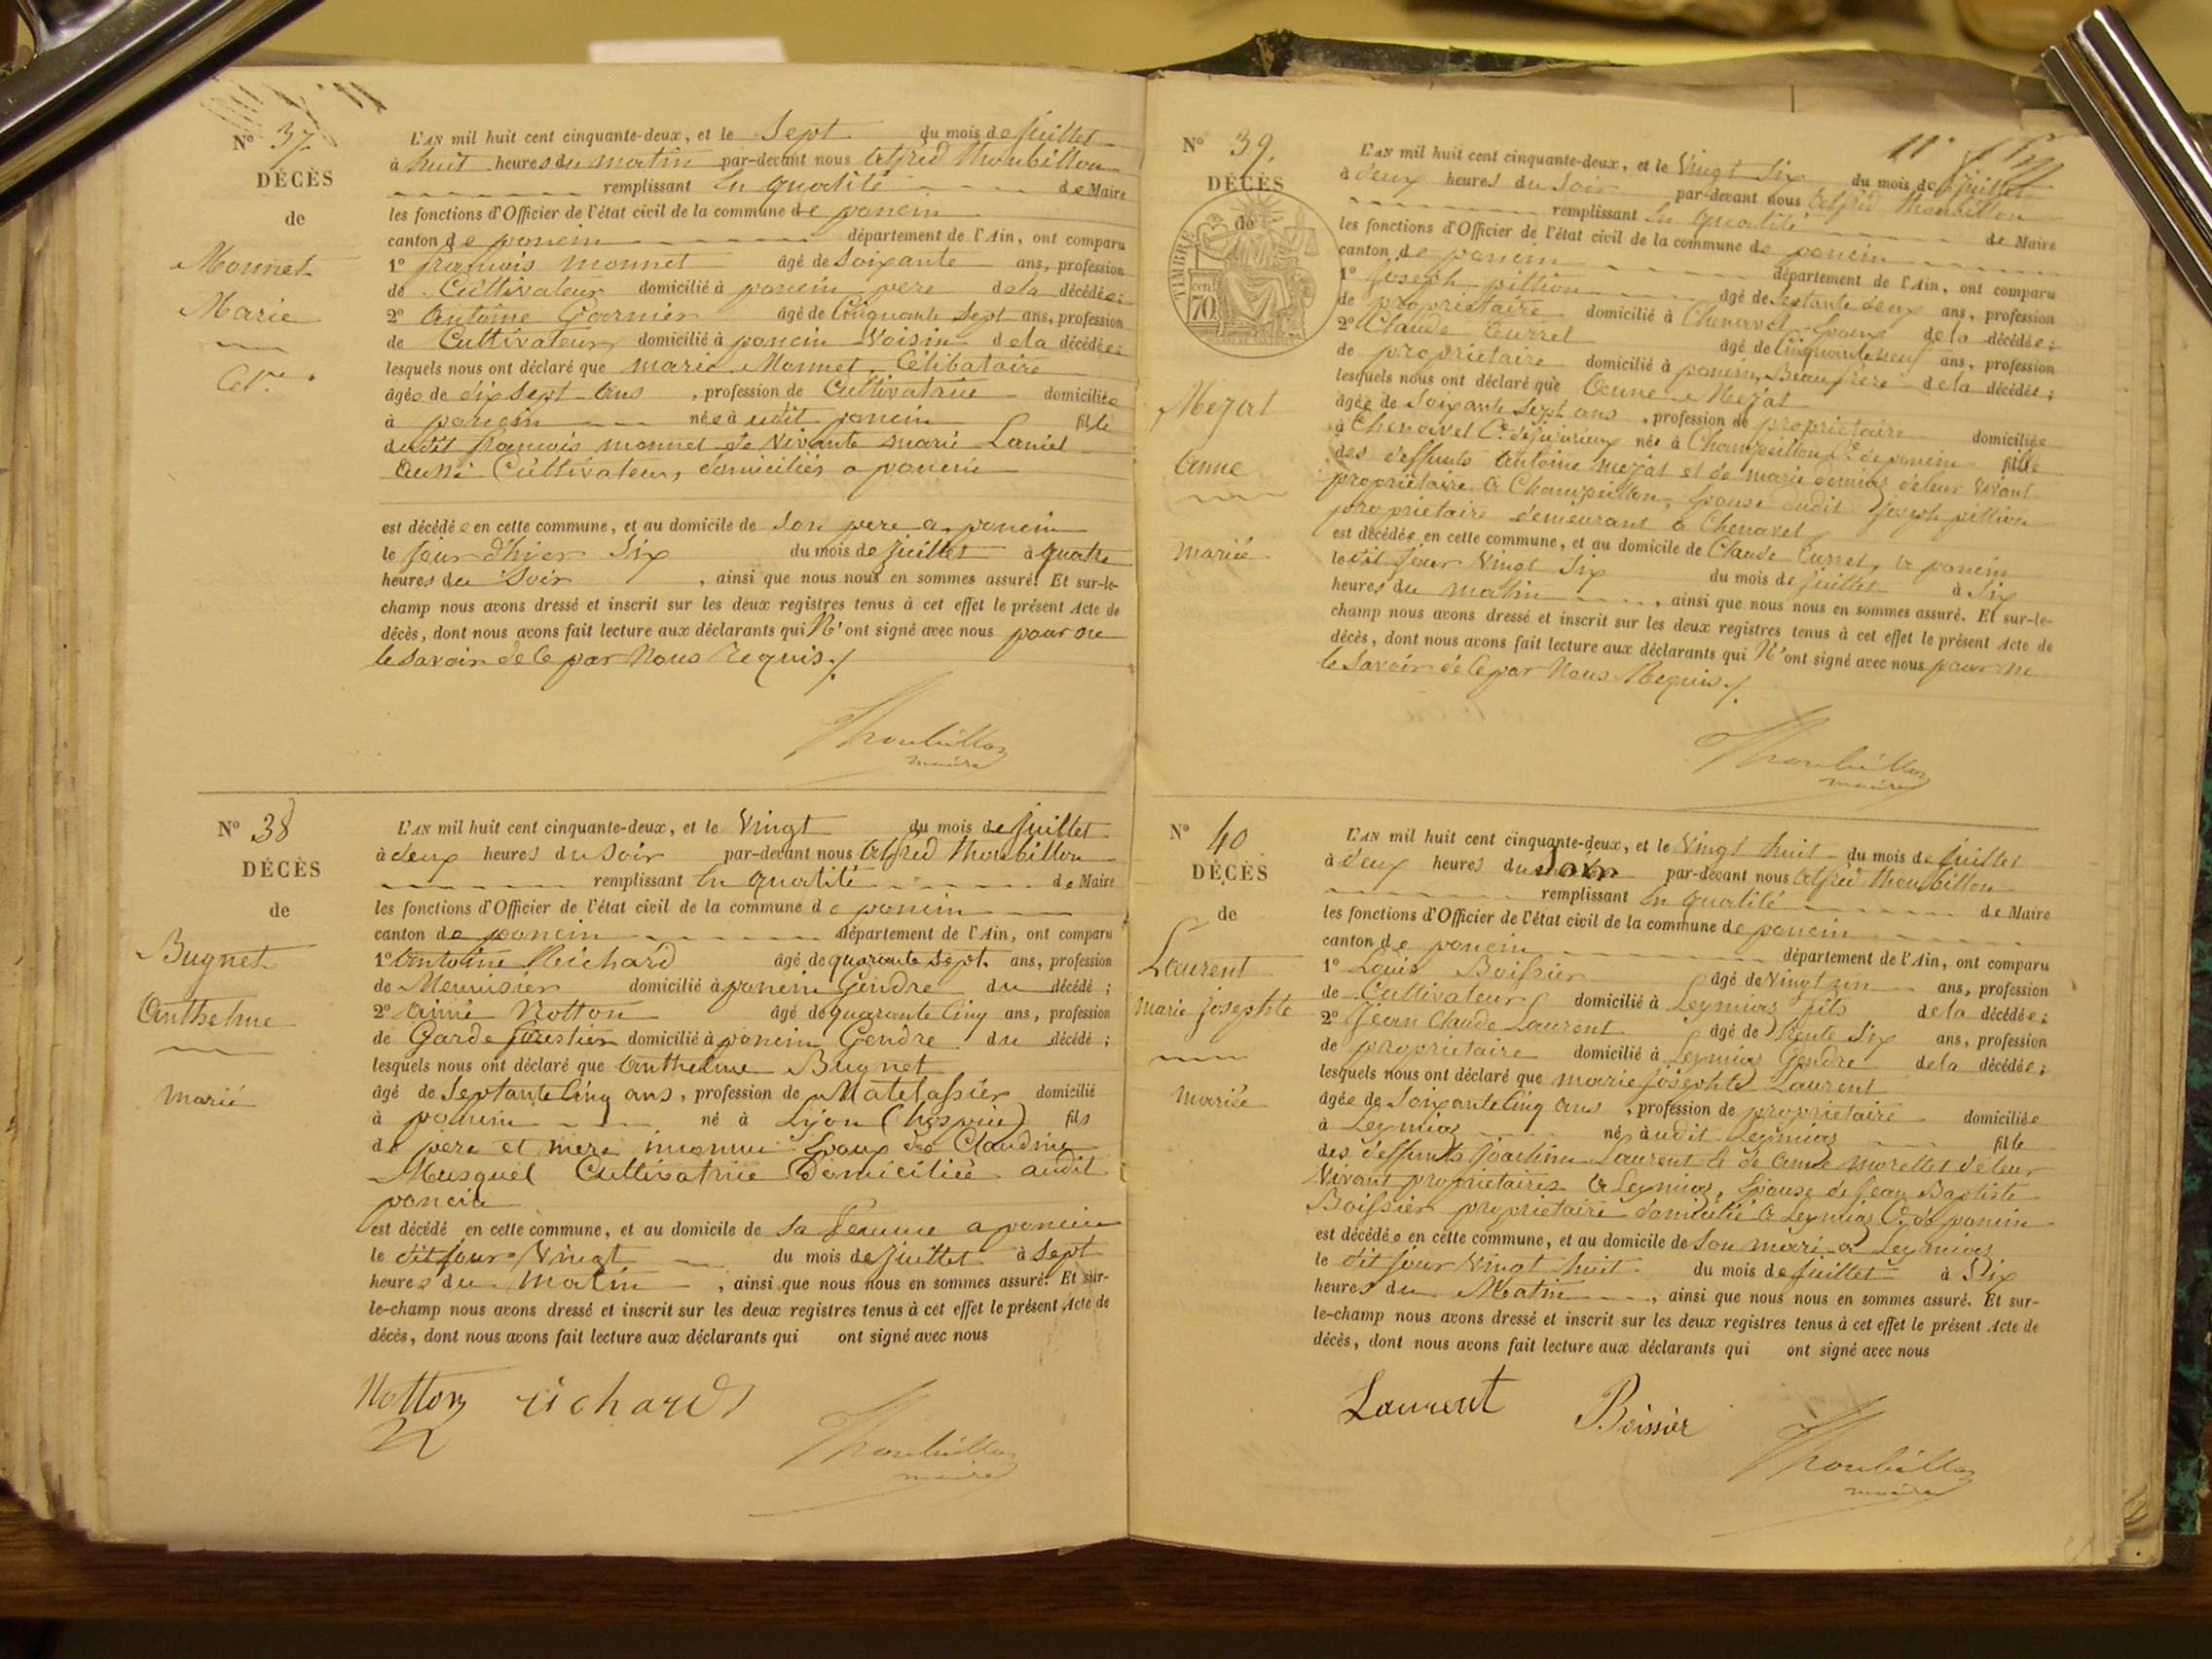 N° 37
DÉCÈS
de
Monnet
Marie
Cél.re
L'AN mil huit cent cinquante-deux, et le Sept du mois de juillet
à huit heures du matin par-devant nous Alfred Thoubillon
remplissant En qualité de Maire
les fonctions d'Officier de l'état civil de la commune de poncin
canton de poncin département de l'Ain, ont comparu
1° françois monnet âgé de Soixante ans, profession
de Cultivateur domicilié à poncin pere de la décédée;
2° Antoine Garnier âgé de Cinquante Sept ans, profession
de Cultivateur domicilié à poncin Voisin de la décédée;
lesquels nous ont déclaré que marie Monnet, Célibataire
âgée de dix Sept ans , profession de Cultivatrice domiciliée
à poncin née à udit poncin fille
dudit françois monnet et de Vivante marie Laniel
aussi Cultivateurs, domiciliés a poncin
est décédée en cette commune, et au domicile de Son pere a poncin
le jour d'hier Six du mois de juillet à quatre
heures du Soir , ainsi que nous nous en sommes assuré. Et sur-le-
champ nous avons dressé et inscrit sur les deux registres tenus à cet effet le présent Acte de
décès, dont nous avons fait lecture aux déclarants qui N'ont signé avec nous pour ne
le Savoir de Ce par Nous Requis./.
Thoubillon
maire
N° 38
DÉCÈS
de
Bugnet
Anthelme
marié
L'AN mil huit cent cinquante-deux, et le Vingt du mois de juillet
à deux heures du Soir par-devant nous Alfred Thoubillon
remplissant En qualité de Maire
les fonctions d'Officier de l'état civil de la commune de poncin
canton de poncin département de l'Ain, ont comparu
1° Antoine Richard âgé de quarante Sept ans, profession
de Menuisier domicilié à poncin Gendre du décédé;
2° aimé Notton âgé de quarante Cinq ans, profession
de Garde forestier domicilié à poncin Gendre du décédé;
lesquels nous ont déclaré que Anthelme Bugnet
âgé de Septante Cinq ans, profession de Matelassier domicilié
à poncin né à Lyon (hospice) fils
de pere et mere inconnu Epoux de Claudine
Musquel Cultivatrice Domiciliée audit
poncin
est décédé en cette commune, et au domicile de Sa femme a poncin
le dit jour Vingt du mois de juillet à Sept
heures du Matin , ainsi que nous nous en sommes assuré. Et sur-
le-champ nous avons dressé et inscrit sur les deux registres tenus à cet effet le présent Acte de
décès, dont nous avons fait lecture aux déclarants qui ont signé avec nous
Notton richard
Thoubillon
maire
N° 39
DÉCÈS
de
TIMBRE
70 cent
Mezat
Anne
mariée
L'AN mil huit cent cinquante-deux, et le Vingt Six du mois de juillet
à deux heures du Soir par-devant nous Alfred Thoubillon
remplissant En qualité de Maire
les fonctions d'Officier de l'état civil de la commune de poncin
canton de poncin département de l'Ain, ont comparu
1° Joseph pillion âgé de Septante deux ans, profession
de proprietaire domicilié à Chenavel Epoux de la décédée;
2° Claude Curret âgé de Cinquante neuf ans, profession
de proprietaire domicilié à poncin, Beaufrere de la décédée;
lesquels nous ont déclaré que Anne Mezat
âgée de Soixante Sept ans , profession de proprietaire domiciliée
à Chenavel Cne de jujurieux née à Champeillon Cne de poncin fille
des deffunts Antoine mezat et de marie de leur Vivant
proprietaire a Champeillon, Epouse dudit Joseph pillion
proprietaire demeurant a Chenavel
est décédée en cette commune, et au domicile de Claude Curret, a poncin
le dit jour Vingt Six du mois de juillet à Six
heures du matin , ainsi que nous nous en sommes assuré. Et sur-le-
champ nous avons dressé et inscrit sur les deux registres tenus à cet effet le présent Acte de
décès, dont nous avons fait lecture aux déclarants qui N'ont signé avec nous pour ne
le Savoir de Ce par Nous Requis./.
Thoubillon
maire
N° 40
DÉCÈS
de
Laurent
marie josephte
mariée
L'AN mil huit cent cinquante-deux, et le Vingt huit du mois de juillet
à deux heures du Soir par-devant nous Alfred Thoubillon
remplissant En qualité de Maire
les fonctions d'Officier de l'état civil de la commune de poncin
canton de poncin département de l'Ain, ont comparu
1° Louis Boissier âgé de Vingt un ans, profession
de Cultivateur domicilié à Leymiaz fils de la décédée;
2° Jean Claude Laurent âgé de Trente Six ans, profession
de proprietaire domicilié à Leymiaz Gendre de la décédée;
lesquels nous ont déclaré que marie josephte Laurent
âgée de Soixante Cinq ans , profession de proprietaire domiciliée
à Leymiaz née à udit Leymiaz fille
des deffunts Joachim Laurent et de Anne Morellet de leur
Vivant proprietaires a Leymiaz, Epouse de Jean Baptiste
Boissier proprietaire domicilié a Leymiaz Cne de poncin
est décédée en cette commune, et au domicile de Son mari a Leymiaz
le dit jour Vingt huit du mois de juillet à Six
heures du Matin , ainsi que nous nous en sommes assuré. Et sur-
le-champ nous avons dressé et inscrit sur les deux registres tenus à cet effet le présent Acte de
décès, dont nous avons fait lecture aux déclarants qui ont signé avec nous
Laurent Boissier
Thoubillon
maire